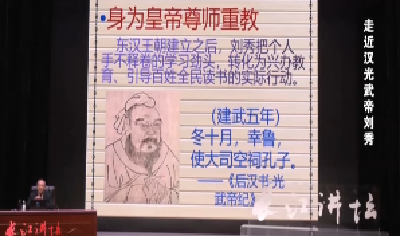 •身为皇帝尊师重教
东汉王朝建立之后，刘秀把个人
手不释卷的学习劲头，转化为兴办教
育、引导百姓全民读书的实际行动。
（建武五年）
冬十月，幸鲁，
使大司空祠孔子。
——《后汉书·光
武帝纪》
走近汉光武帝刘秀
长江讲坛
长江讲坛